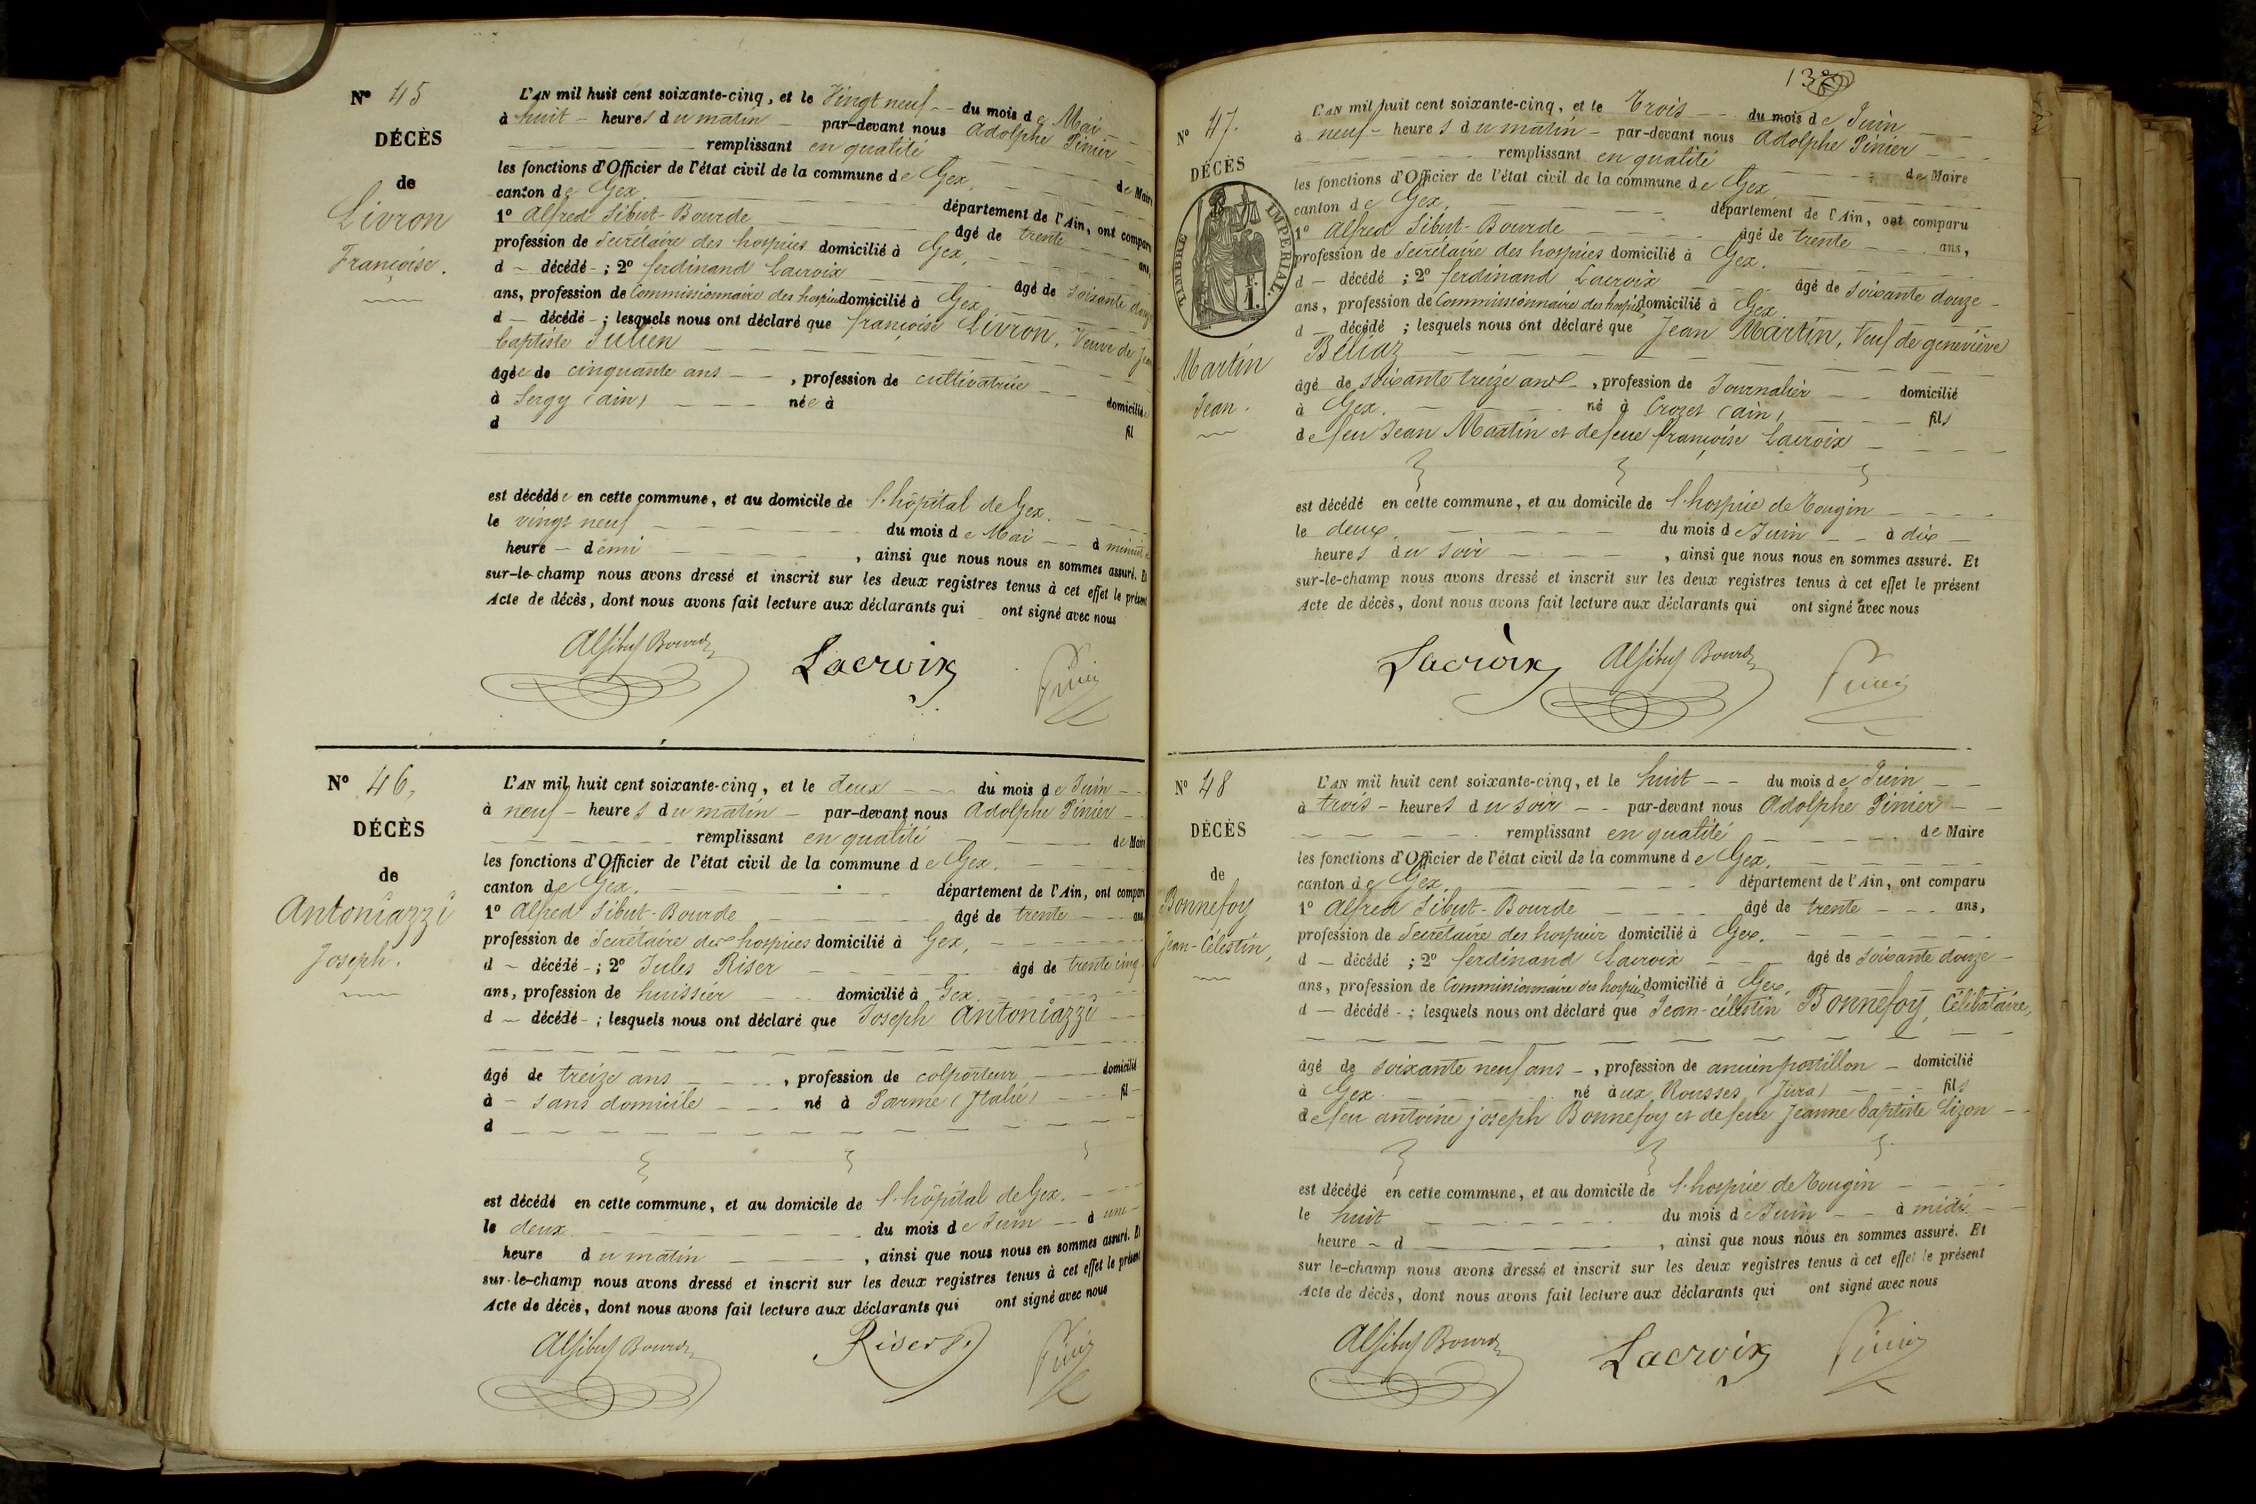 N° 45
DÉCÈS
de
Livron
Françoise.
L'AN mil huit cent soixante-cinq, et le Vingt neuf du mois de Mai
à huit heures du matin par-devant nous Adolphe Pinier
remplissant en qualité de Maire
les fonctions d'Officier de l'état civil de la commune de Gex,
canton de Gex, département de l'Ain, ont comparu
1° Alfred Sibut-Bourde âgé de trente ans,
profession de Secrétaire des hospices domicilié à Gex,
d décédé ; 2° ferdinand Lacroix âgé de soixante douze
ans, profession de Commissionnaire des hospices domicilié à Gex
d décédé ; lesquels nous ont déclaré que françoise Livron, Veuve de Jean
baptiste Julien
âgée de cinquante ans , profession de cultivatrice domiciliée
à Sergy (ain) née à
d fil
est décédée en cette commune, et au domicile de l'hôpital de Gex.
le vingt neuf du mois de Mai à minuit
heure demi , ainsi que nous nous en sommes assuré. Et
sur-le-champ nous avons dressé et inscrit sur les deux registres tenus à cet effet le présent
Acte de décès, dont nous avons fait lecture aux déclarants qui ont signé avec nous
Alf Sibut Bourde Lacroix Pinier
N° 46,
DÉCÈS
de
Antoniazzi
Joseph.
L'AN mil huit cent soixante-cinq, et le deux du mois de Juin
à neuf heures du matin par-devant nous Adolphe Pinier
remplissant en qualité de Maire
les fonctions d'Officier de l'état civil de la commune de Gex.
canton de Gex. département de l'Ain, ont comparu
1° Alfred Sibut-Bourde âgé de trente ans
profession de Secrétaire des hospices domicilié à Gex,
d décédé ; 2° Jules Riser âgé de trente cinq
ans, profession de huissier domicilié à Gex.
d décédé ; lesquels nous ont déclaré que Joseph Antoniazzi
âgé de treize ans , profession de colporteur domicilié
à sans domicile né à Parme (Italie) fil
d
est décédé en cette commune, et au domicile de l'hôpital de Gex.
le deux du mois de Juin à une
heure du matin , ainsi que nous nous en sommes assuré. Et
sur-le-champ nous avons dressé et inscrit sur les deux registres tenus à cet effet le présent
Acte de décès, dont nous avons fait lecture aux déclarants qui ont signé avec nous
Alf Sibut Bourde Riser J. Pinier
N° 47.
DÉCÈS
TIMBRE IMPÉRIAL
Martin
Jean.
L'AN mil huit cent soixante-cinq, et le Trois du mois de Juin
à neuf heures du matin par-devant nous Adolphe Pinier
remplissant en qualité de Maire
les fonctions d'Officier de l'état civil de la commune de Gex
canton de Gex, département de l'Ain, ont comparu
1° Alfred Sibut-Bourde âgé de trente ans,
profession de Secrétaire des hospices domicilié à Gex.
d décédé ; 2° ferdinand Lacroix âgé de soixante douze
ans, profession de Commissionnaire des hospices domicilié à Gex.
d décédé ; lesquels nous ont déclaré que Jean Martin, Veuf de geneviève
Béliaz
âgé de soixante treize ans , profession de Journalier domicilié
à Gex. né à Crozet (ain) fils
de feu Jean Martin et de feue françoise Lacroix
est décédé en cette commune, et au domicile de l'hospice de Tougin
le deux du mois de Juin à dix
heures du soir , ainsi que nous nous en sommes assuré. Et
sur-le-champ nous avons dressé et inscrit sur les deux registres tenus à cet effet le présent
Acte de décès, dont nous avons fait lecture aux déclarants qui ont signé avec nous
Lacroix Alf Sibut Bourde Pinier
N° 48
DÉCÈS
de
Bonnefoy
Jean-Célestin,
L'AN mil huit cent soixante-cinq, et le huit du mois de Juin
à trois heures du soir par-devant nous Adolphe Pinier
remplissant en qualité de Maire
les fonctions d'Officier de l'état civil de la commune de Gex,
canton de Gex, département de l'Ain, ont comparu
1° Alfred Sibut-Bourde âgé de trente ans,
profession de Secrétaire des hospices domicilié à Gex.
d décédé ; 2° ferdinand Lacroix âgé de soixante douze
ans, profession de Commissionnaire des hospices domicilié à Gex.
d décédé ; lesquels nous ont déclaré que Jean-célestin Bonnefoy, Célibataire,
âgé de soixante neuf ans , profession de ancien postillon domicilié
à Gex né aux Rousses (Jura) fils
de feu antoine joseph Bonnefoy et de feue Jeanne baptiste Lizon
est décédé en cette commune, et au domicile de l'hospice de Tougin
le huit du mois de Juin à midi
heure d , ainsi que nous nous en sommes assuré. Et
sur le-champ nous avons dressé et inscrit sur les deux registres tenus à cet effet le présent
Acte de décès, dont nous avons fait lecture aux déclarants qui ont signé avec nous
Alf Sibut Bourde Lacroix Pinier